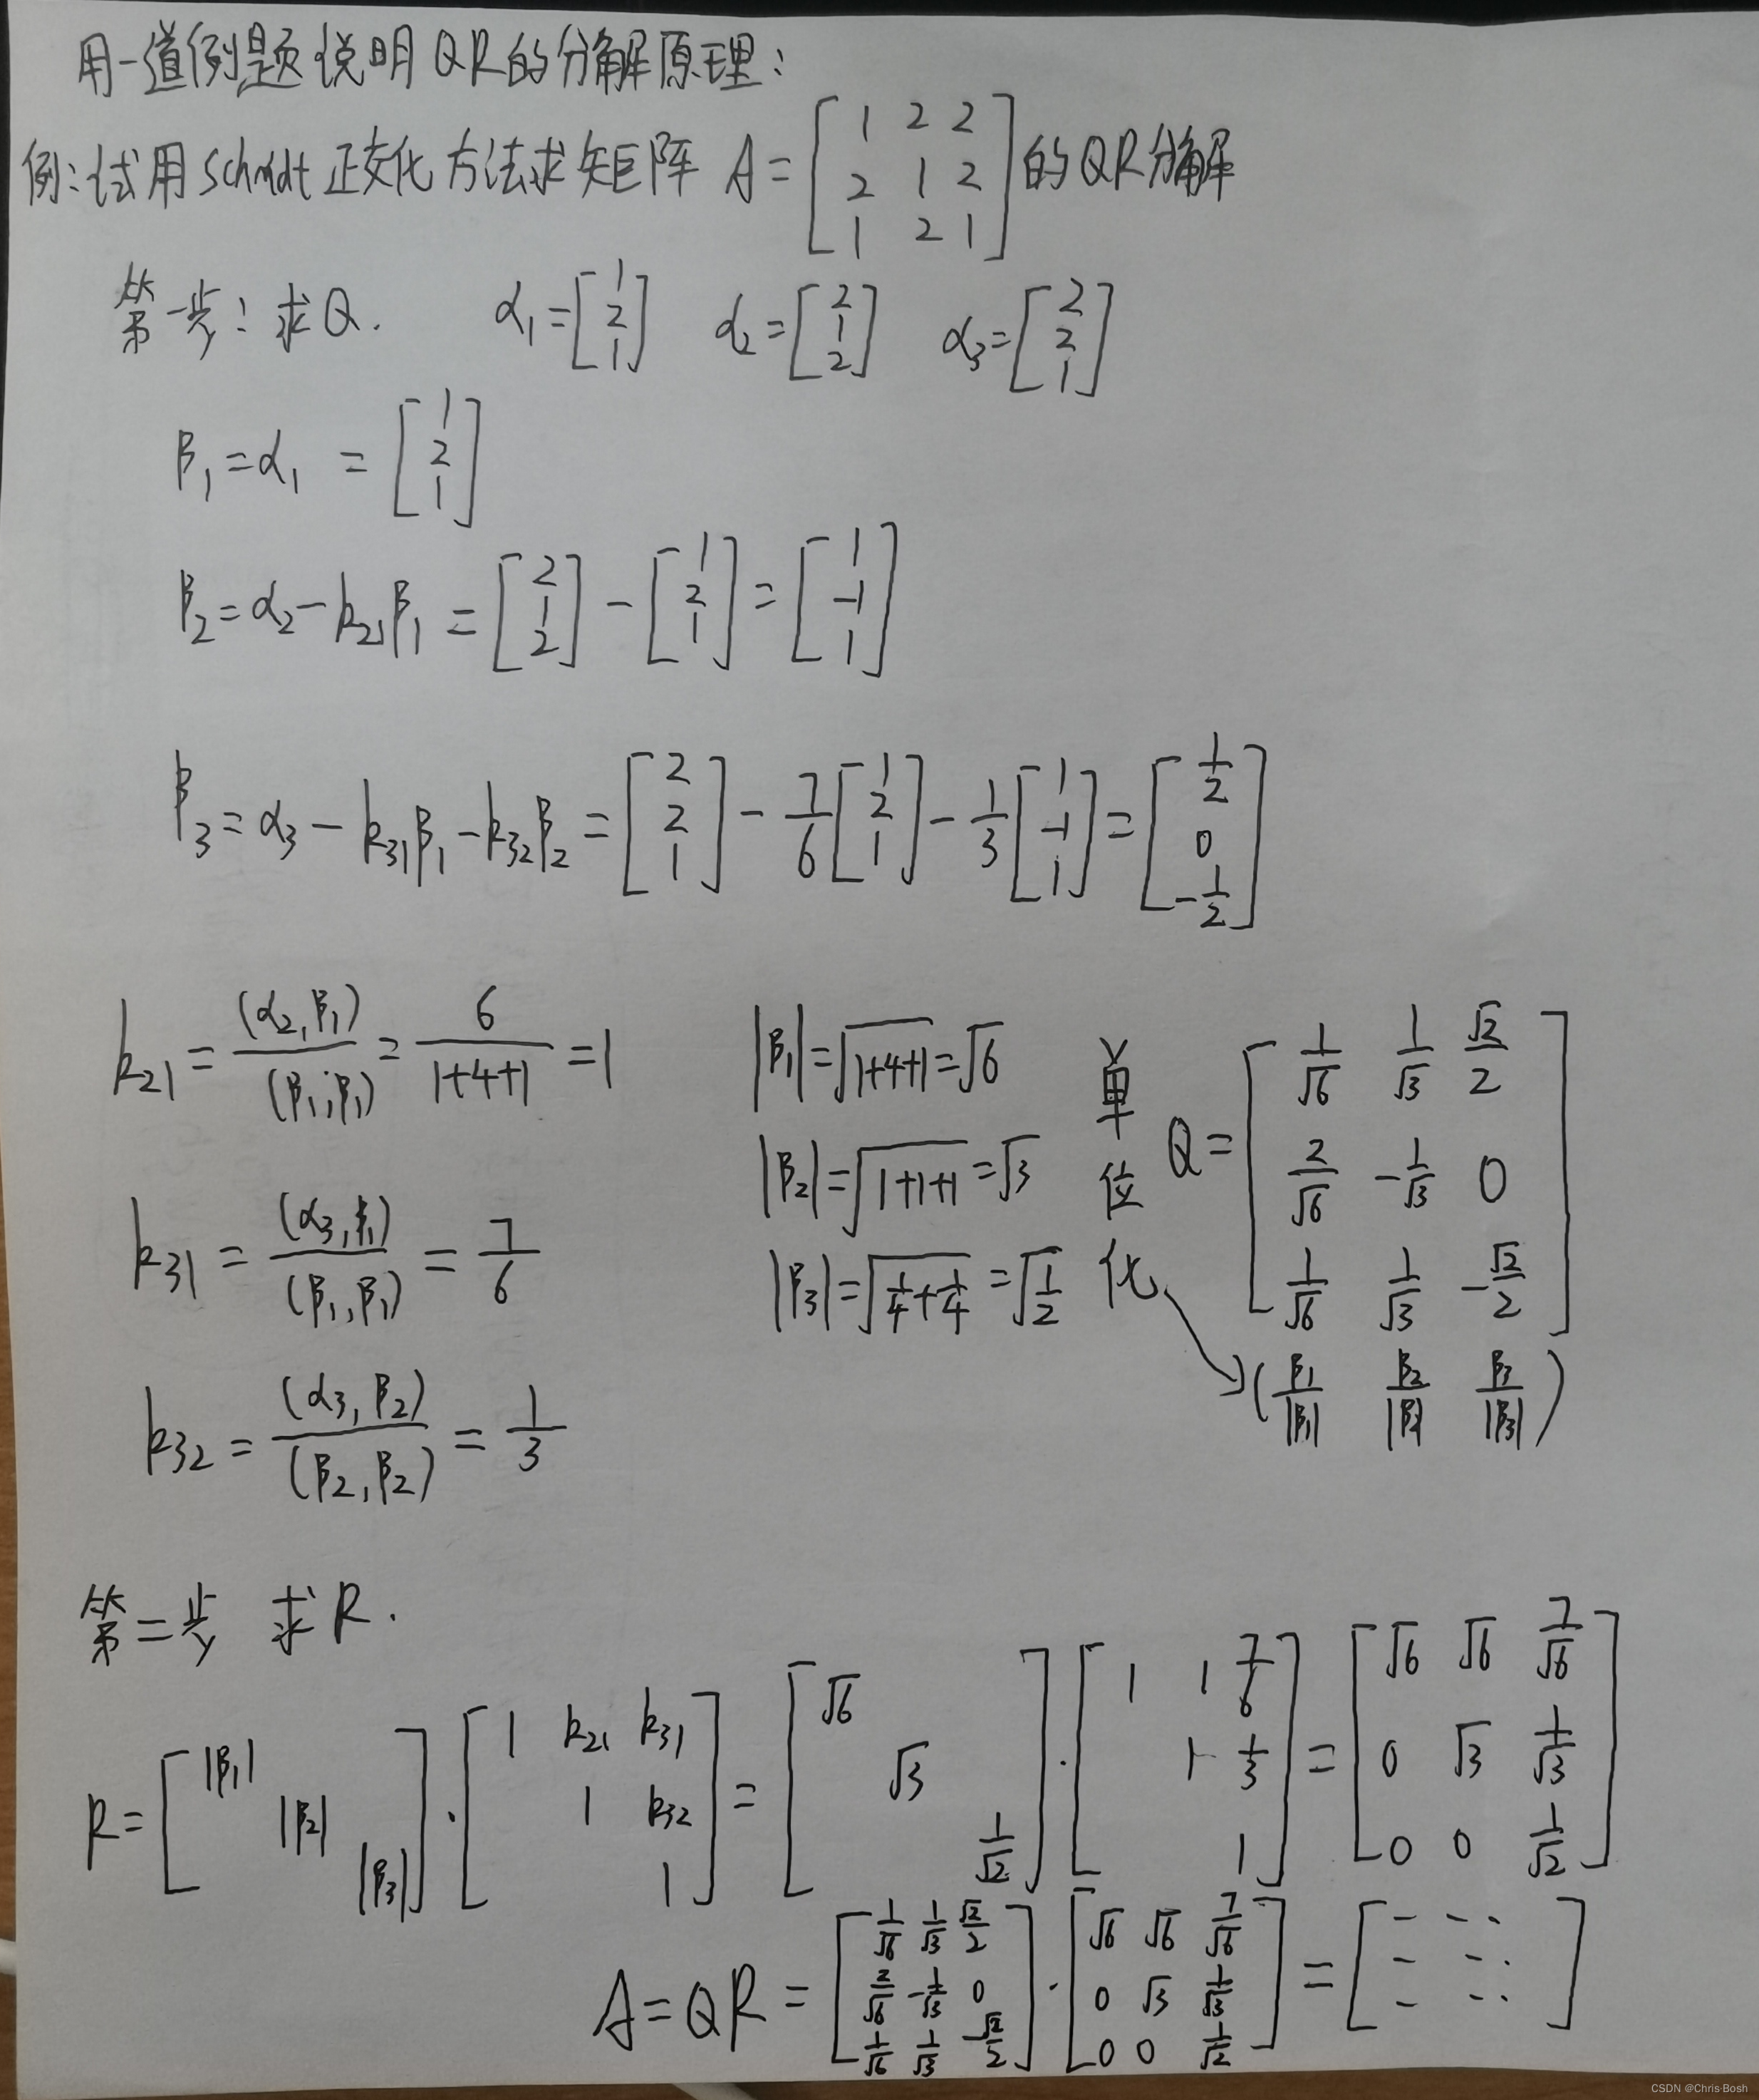 用一道例题说明QR的分解原理：
例：试用Schmidt正交化方法求矩阵 A = [1 2 2; 2 1 2; 1 2 1] 的QR分解
第一步：求Q. α₁ = [1; 2; 1] α₂ = [2; 1; 2] α₃ = [2; 2; 1]
β₁ = α₁ = [1; 2; 1]
β₂ = α₂ - k₂₁β₁ = [2; 1; 2] - [1; 2; 1] = [1; -1; 1]
β₃ = α₃ - k₃₁β₁ - k₃₂β₂ = [2; 2; 1] - 7/6 [1; 2; 1] - 1/3 [1; -1; 1] = [1/2; 0; -1/2]
k₂₁ = (α₂, β₁)/(β₁, β₁) = 6/(1+4+1) = 1
k₃₁ = (α₃, β₁)/(β₁, β₁) = 7/6
k₃₂ = (α₃, β₂)/(β₂, β₂) = 1/3
|β₁| = √(1+4+1) = √6
|β₂| = √(1+1+1) = √3
|β₃| = √(1/4+1/4) = √(1/2)
单位化
Q = [1/√6 1/√3 √2/2; 2/√6 -1/√3 0; 1/√6 1/√3 -√2/2]
(β₁/|β₁| β₂/|β₂| β₃/|β₃|)
第二步 求R.
R = [|β₁| |β₂| |β₃|] · [1 k₂₁ k₃₁; 1 k₃₂; 1] = [√6 √3 1/√2] · [1 1 7/6; 1 1/3; 1] = [√6 √6 7/√6; 0 √3 1/√3; 0 0 1/√2]
A = QR = [1/√6 1/√3 √2/2; 2/√6 -1/√3 0; 1/√6 1/√3 -√2/2] · [√6 √6 7/√6; 0 √3 1/√3; 0 0 1/√2] = [- - ··; - - ··; - ··]
CSDN @Chris·Bosh